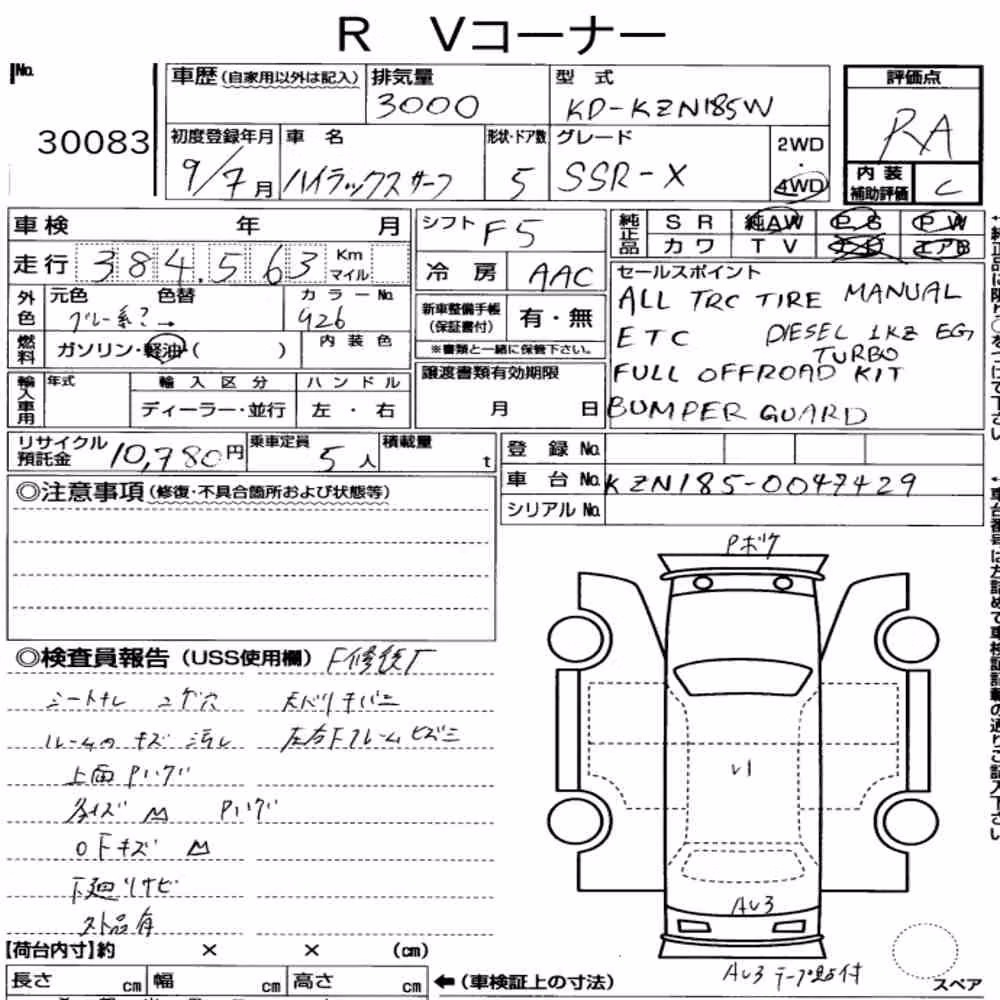 R Vコーナー
No.
30083
車歴 (自家用以外は記入) 排気量 3000 型式 KD-KZN185W
初度登録年月 9/7月 車名 ハイラックスサーフ 形状・ドア数 5 グレード SSR-X 2WD・4WD
評価点 RA
内装補助評価 C
車検 年 月
走行 384,563 Km マイル
外色 元色 グレー系?→ 色替 カラーNo. 426
燃料 ガソリン・軽油・( ) 内装色
輸入車用 年式 輸入区分 ディーラー・並行 ハンドル 左・右
シフト F5
冷房 AAC
新車整備手帳 (保証書付) 有・無
※書類と一緒に保管下さい。
譲渡書類有効期限 月 日
純正品 SR 純AW PS PW
カワ TV エアB
セールスポイント
ALL TRC TIRE MANUAL
ETC DIESEL 1KZ EG
TURBO
FULL OFFROAD KIT
BUMPER GUARD
リサイクル預託金 10,780円 乗車定員 5人 積載量 t
登録No.
車台No. KZN185-0047429
シリアルNo.
◎注意事項 (修復・不具合箇所および状態等)
◎検査員報告 (USS使用欄) F修復有
シートナレ コゲ穴 天ハリ
ルームのキズ 汚レ 左右Fフレームヒズミ
上面Pハゲ
Pハゲ
キズ
下廻りサビ
外品有
Pボケ
U1
AU3
AU3 テープ 付
【荷台内寸】約 × × (cm)
長さ cm 幅 cm 高さ cm
←(車検証上の寸法)
スペア